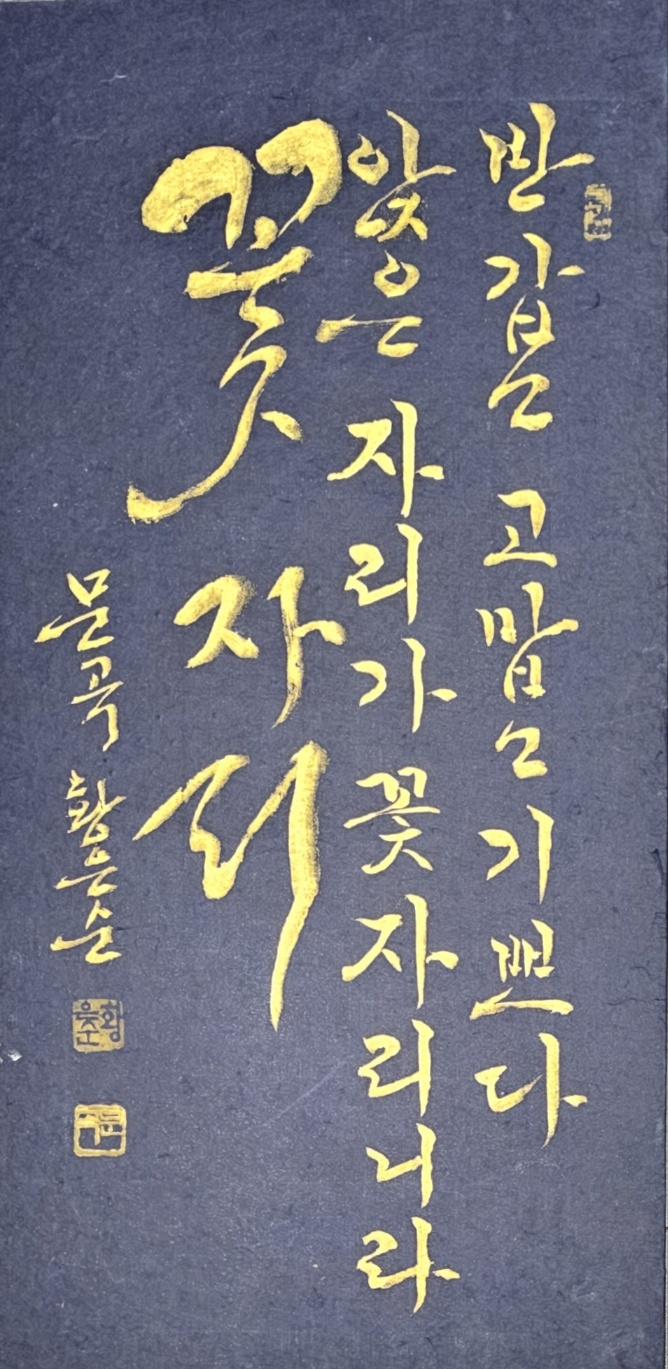 반갑고 고맙고 기쁘다
앉은 자리가 꽃자리니라
꽃자리
문곡 황은순